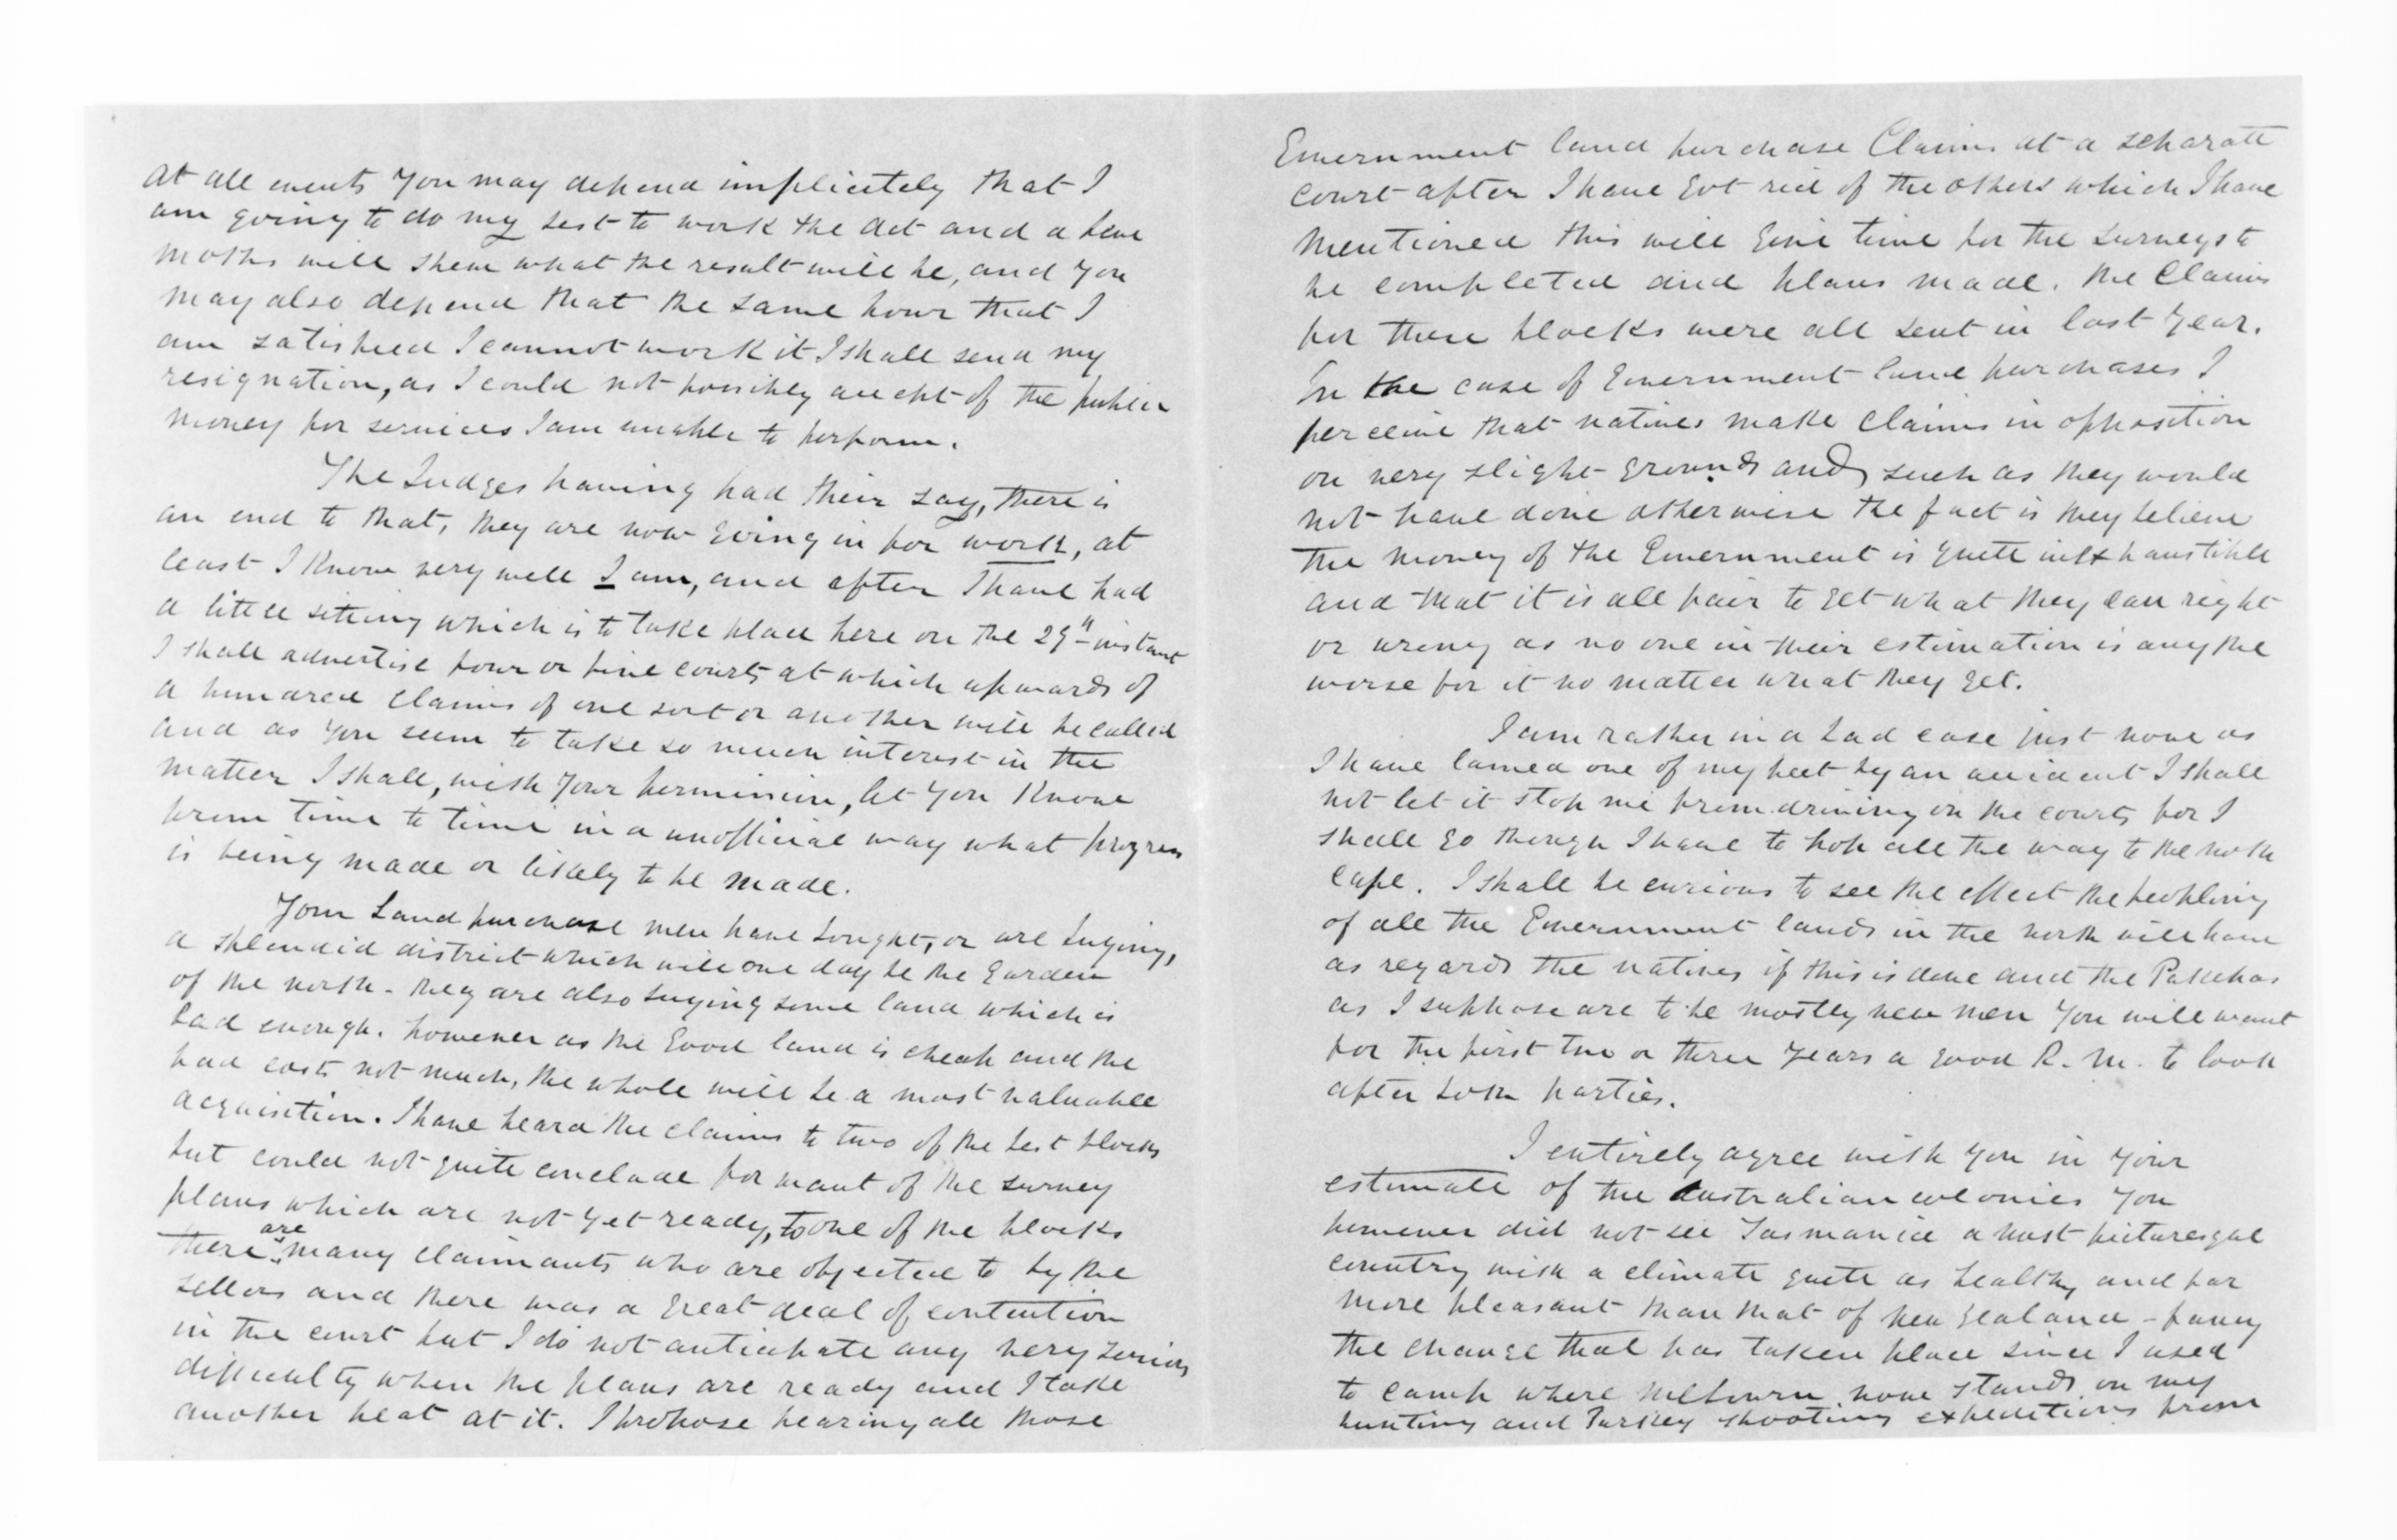 at all events you may depend implicitely that I
am going to do my best to work the Act and a few
moths will shew what the result will be, and you
may also depend that the same hour that I
am satisfied I cannot work it I shall send my
resignation, as I could not possibly accept of the public
money for services I am unable to perform.
The Judges having had their say, there is
an end to that, they are now going in for work, at
least I know very well I am, and after I have had
a little sitting which is to take place here on the 29th instant
I shall advertise four or five courts at which upwards of
a hundred claims of one sort or another will be called
and as you seem to take so much interest in the
matter I shall, with your permission, let you know
from time to time in a unofficial way what progress
is being made or likely to be made.
Your Land purchase men have bought, or are buying,
a splendid district which will one day be the Garden
of the north - they are also buying some land which is
bad enough. however as the good land is cheap and the
bad costs not much, the whole will be a most valuable
acquisition. I have heard the claims to two of the best blocks
but could not quite conclude for want of the survey
plans which are not yet ready, to one of the blocks
there are many claimants who are objected to by the
sellers and there was a great deal of contention
in the court but I do not anticipate any very serious
difficulty when the plans are ready and I take
another heat at it. I propose hearing all those
Government land purchase Claims at a separate
court after I have got rid of the others which I have
mentioned this will give time for the surveys to
be completed and plans made. the Claims
for these blocks were all sent in last year.
In the case of Government land purchases I
perceive that natives make claims in opposition
on very slight grounds and such as they would
not have done otherwise the fact is they believe
the money of the Government is quite inexhaustible
and that it is all fair to get what they can right
or wrong as no one in their estimation is any the
worse for it no matter what they get.
I am rather in a bad case just now as
I have lamed one of my feet by an accident I shall
not let it stop me from driving on the courts for I
shall go though I have to hop all the way to the north
cape. I shall be curious to see the effect the peopling
of all the Government lands in the north will have
as regards the natives if this is done and the Pakehas
as I suppose are to be mostly new men you will want
for the first two or three years a good R. M. to look
after both parties.
I entirely agree with you in your
estimate of the Australian colonies you
however did not see Tasmania a most picturesque
country with a climate quite as healthy and far
more pleasant than that of New Zealand - fancy
the change that has taken place since I used
to camp where Melbourn now stands on my
hunting and Turkey shooting expeditions from